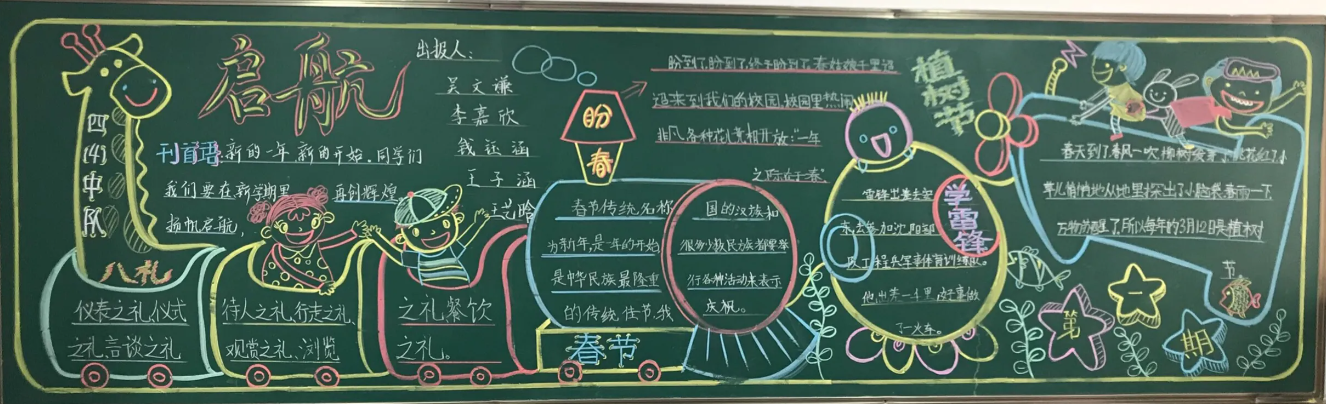 四(4)中队
启航
出报人：
吴文谦
李嘉欣
钱钰涵
王子涵
刊首语：新的一年，新的开始，同学们
我们要在新学期里 再创辉煌
扬帆启航，
八礼
仪表之礼、仪式
之礼、言谈之礼
待人之礼、行走之礼、
观赏之礼、游览
之礼、餐饮
之礼。
盼春
盼到了，盼到了，终于盼到了，春姑娘千里迢
迢来到我们的校园，校园里热闹
非凡，各种花儿竞相开放："一年
之际在于春"
春节传统名称
为新年，是一年的开始
是中华民族最隆重
的传统佳节，我
国的汉族和
很多少数民族都要举
行各种活动来表示
庆祝。
春节
学雷锋
雷锋出差去
来去参加沈阳部
队工程兵军事体育训练队。
他出差一千里，好事做
了一火车。
植树节
春天到了，春风一吹，柳树发芽了，桃花红了，小
草儿悄悄地从地里探出了小脑袋，春雨一下，
万物苏醒了，所以每年的3月12日是植树
节
第一期